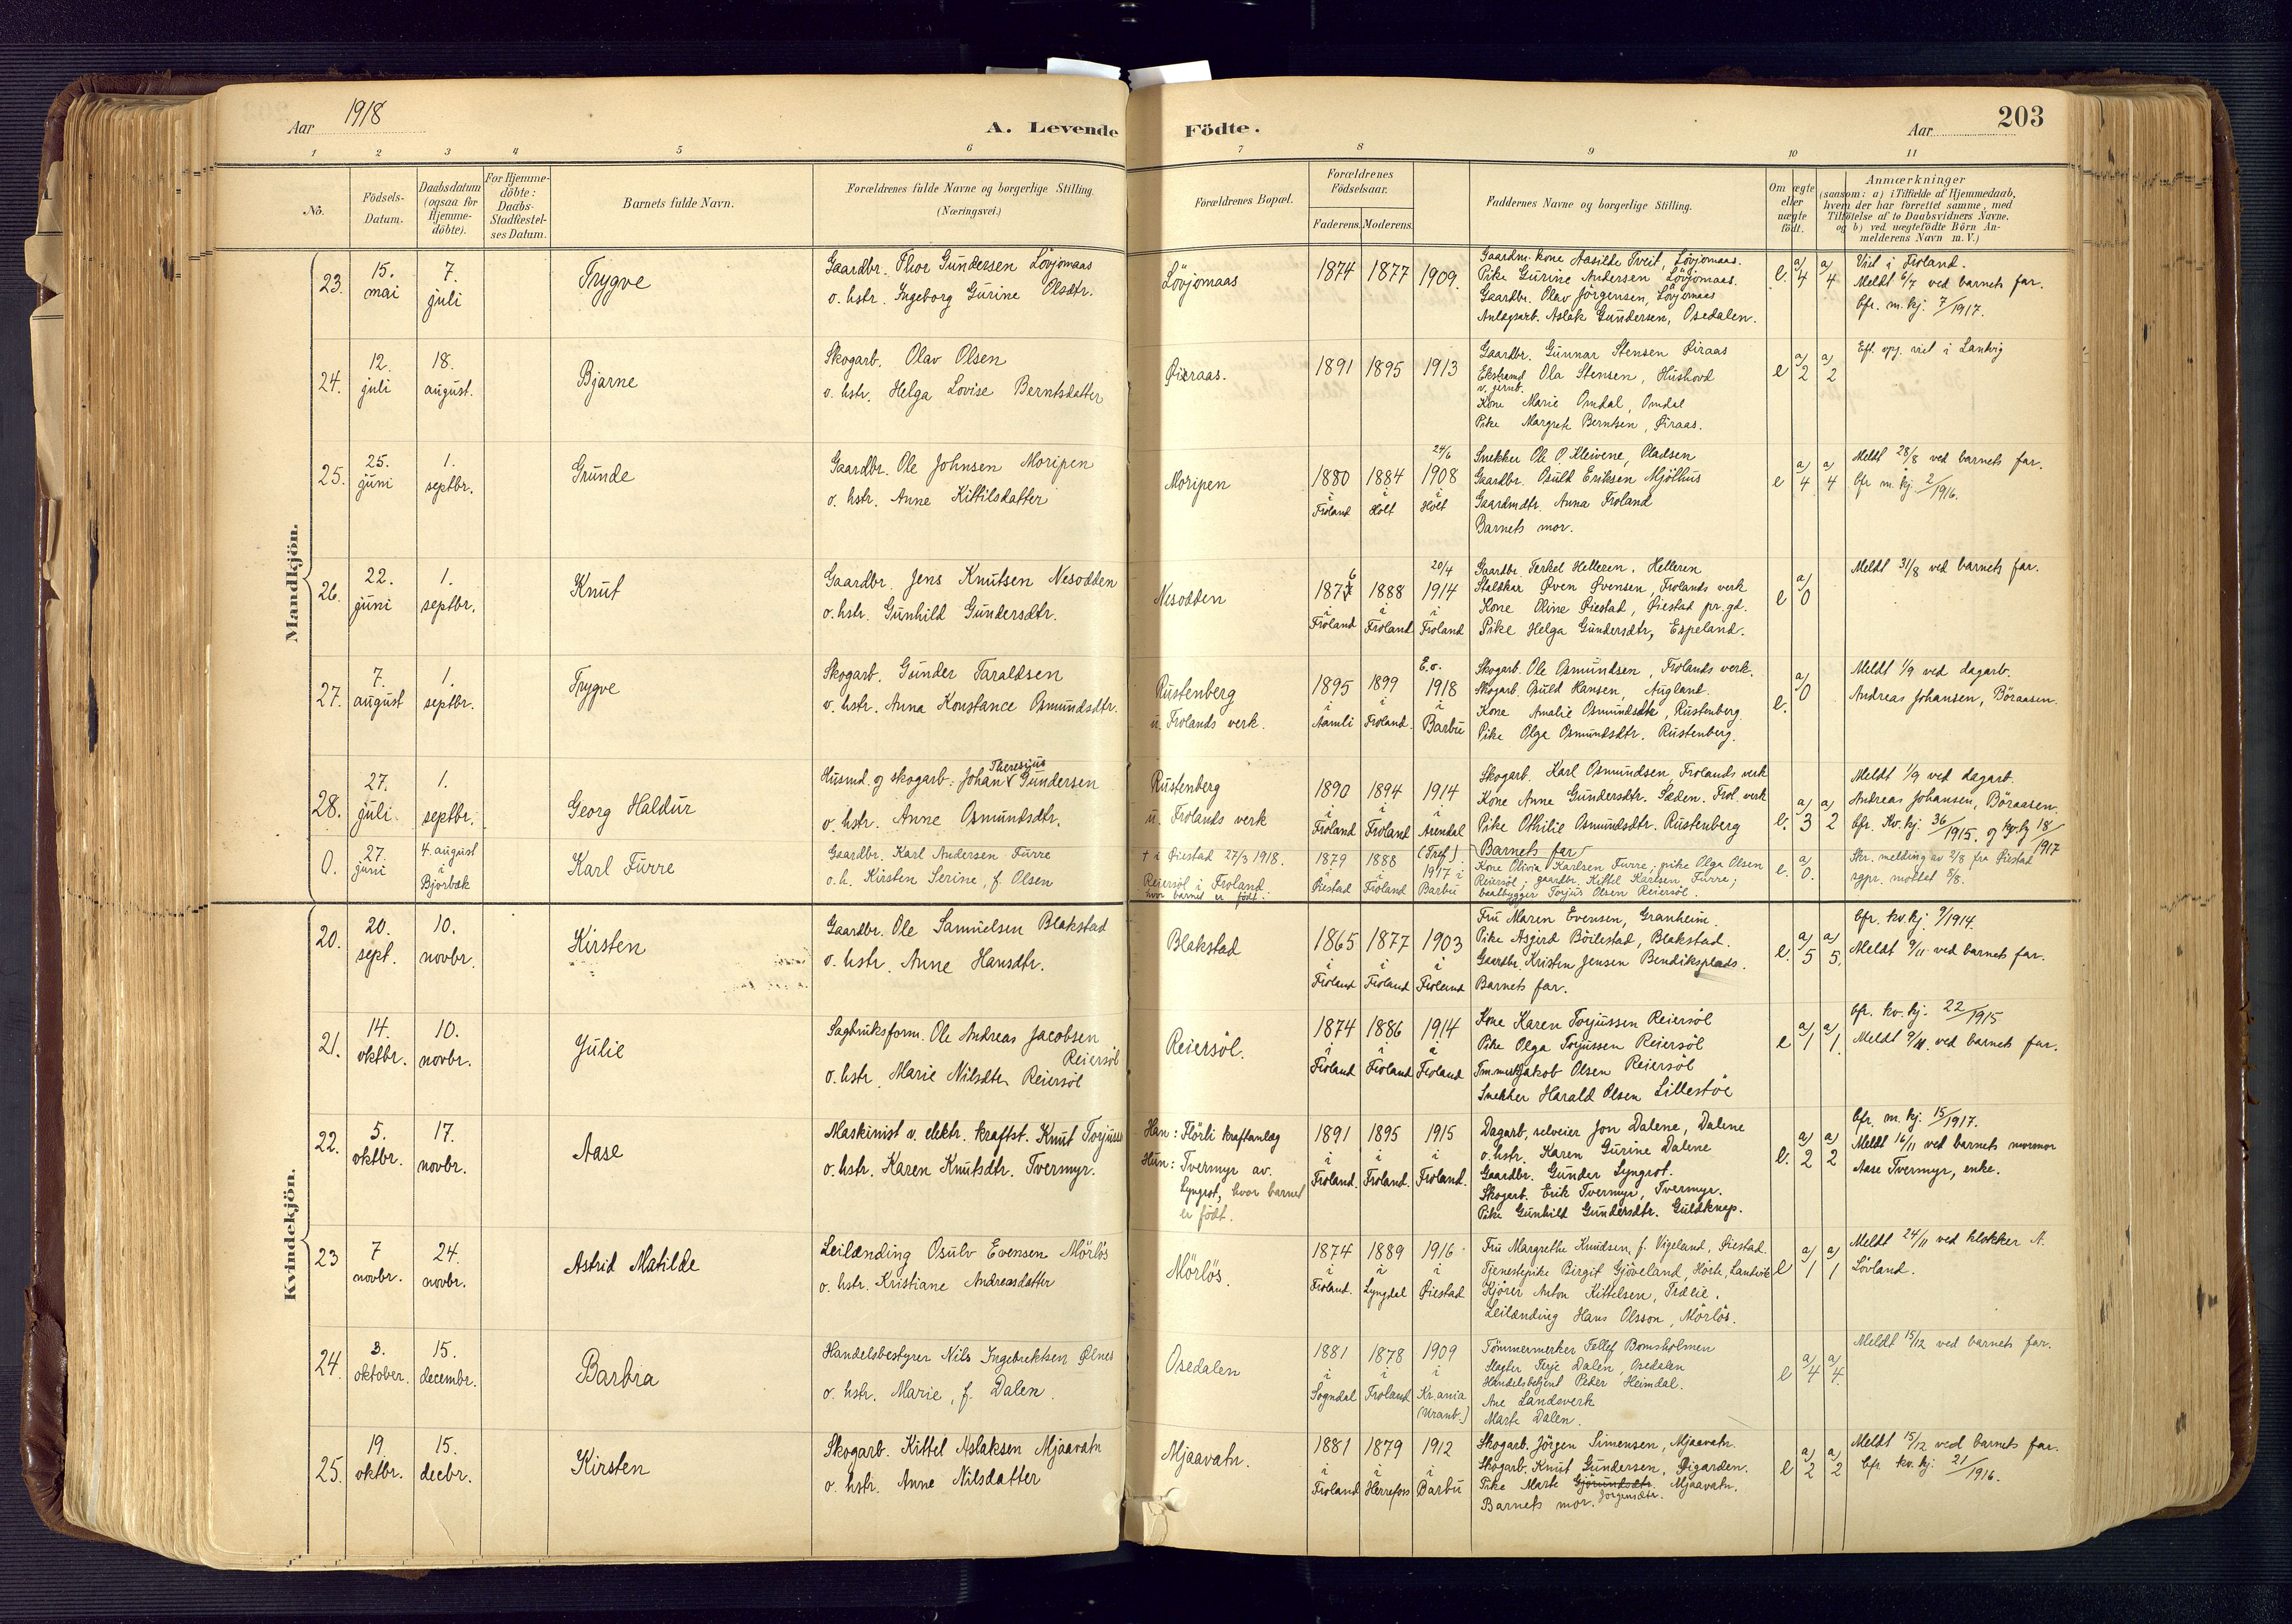 203
Aar 1918
A. Levende
Födte.
Aar
1 2 3 4 5 6 7 8 9 10 11
No.
Födsels-
Datum.
Daabsdatum
(ogsaa for
Hjemme-
döbte).
For Hjemme-
döbte:
Daabs-
Stadfæstel-
ses Datum.
Barnets fulde Navn.
Forældrenes fulde Navne og borgerlige Stilling.
(Næringsvei.)
Forældrenes Bopæl.
Forældrenes
Födselsaar.
Faderens. Moderens.
Faddernes Navne og borgerlige Stilling.
Om ægte
eller
uægte
födt.
Anmærkninger
(saasom: a) i Tilfælde af Hjemmedaab,
hvem der har forrettet samme, med
Tilföielse af to Daabsvidners Navne,
og b) ved uægtefödte Börn An-
melderens Navn m. V.)
Mandkjön.
23.
15.
mai
7.
juli
Trygve
Gaardbr. Thor Gundersen Lövjomaas
o. hstr. Ingeborg Gurine Olsdtr.
Lövjomaas
1874 1877 1909.
Gaardm. kone Aasilde Tveit, Lövjomaas.
Pike Gurine Andersen Lövjomaas.
Gaardbr. Olav Jörgensen, Lövjomaas
Anlægsarb. Aslak Gundersen, Osedalen.
e. a/4 a/4
Viet i Froland.
Meldt 6/7 ved barnets far.
Cfr. m. kj. 7/1917.
24.
12.
juli
18.
august.
Bjarne
Skogarb. Olav Olsen
o. hstr. Helga Lovise Berntsdatter
Øieraas.
1891 1895 1913
Gaardbr. Gunnar Stensen Øiraas
Ekstramd Ola Stensen, Hushovd
v. jernb.
Kone Marie Omdal, Omdal
Pike Margret Berntsen, Øiraas.
e a/2 a/2
Eft. opg. viet i Landvig
25.
25.
juni
1.
septbr.
Grunde
Gaardbr. Ole Johnsen Moripen
o. hstr. Anne Kittilsdatter
Moripen
1880 1884
24/6
1908
i Froland i Holt i Holt
Snekker Ole P. Kleivene, Pladsen
Gaardbr. Osuld Eriksen Mjölhus
Gaardmdtr. Anna Froland
Barnets mor.
e a/4 a/4
Meldt 28/8 ved barnets far.
Cfr m. kj. 2/1916.
26.
22.
juni
1.
septbr.
Knut
Gaardbr. Jens Knutsen Nesodden
o. hstr. Gunhild Gundersdtr.
Nesodden
1876 1888
20/4
1914
i Froland i Froland i Froland
Gaardbr. Terkel Helleren, Helleren
Staldkar Øven Øvensen, Frolands verk
Kone Oline Øiestad, Øiestad pr. gd.
Pike Helga Gundersdtr, Espeland.
e a/0
Meldt 31/8 ved barnets far.
27.
7.
august
1.
septbr.
Trygve
Skogarb. Gunder Taraldsen
o. hstr. Anna Konstance Osmundsdtr.
Rustenberg
u. Frolands verk.
1895 1899
E.o.
1918
i Aamli i Froland. i Barbu
Skogarb. Ole Osmundsen, Frolands verk.
Skogarb. Osuld Hansen, Augland.
Kone Amalie Osmundsdtr, Rustenberg.
Pike Olga Osmundsdtr. Rustenberg.
e. a/0
Meldt 1/9 ved dagarb.
Andreas Johansen, Böraasen.
28.
27.
juli.
1.
septbr.
Georg Haldur
Theresius
Husmd. og skogarb. Johan Gundersen
o. hstr. Anne Osmundsdtr.
Rustenberg
u. Frolands verk
1890 1894 1914
i Froland i Froland i Arendal
(Tref.)
Skogarb. Karl Osmundsen, Frolands verk
Kone Anne Gundersdtr. Sæden. Frol. verk
Pike Othilie Osmundsdtr. Rustenberg
Barnets far
e. a/3 a/2
Meldt 1/9 ved dagarb.
Andreas Johansen, Böraasen
Cfr. Kv. kj. 36/1915. og 18/1917
0.
27.
juni
4. august
i
Bjorbæk
Karl Furre
Gaardbr. Karl Andersen Furre
o. h. Kirsten Serine, f. Olsen
† i Øiestad 27/3 1918.
Reiersöl i Froland.
hvor barnet er födt.
1879 1888 1917 i
i Øiestad i Froland Barbu
Kone Olivia Karlsen Furre; pike Olga Olsen
Reiersöl; gaardbr. Kittel Karlsen Furre;
baatbygger Torjus Olsen Reiersöl.
e. a/0.
Skr. melding av 2/8 fra Øiestad
sgpr. mottat 5/8.
Kvindekjön.
20.
20.
sept.
10.
novbr.
Kirsten
Gaardbr. Ole Samuelsen Blakstad
o. hstr. Anne Hansdtr.
Blakstad
1865 1877 1903
i Froland i Froland i Froland
Fru Maren Evensen, Granheim.
Pike Asgjerd Böilestad, Blakstad.
Gaardbr. Kristen Jensen Bendiksplads.
Barnets far.
e. a/5 a/5.
Cfr. kv. kj. 9/1914.
Meldt 9/11 ved barnets far.
21.
14.
oktbr.
10.
novbr.
Julie
Sagbruksform. Ole Andreas Jacobsen
Reiersöl
o. hstr. Marie Nilsdtr Reiersöl
Reiersöl.
1874 1886 1914
i Froland i Froland i Froland
Kone Karen Torjussen Reiersöl
Pike Olga Torjussen Reiersöl
Tm.merk Jakob Olsen Reiersöl
Snekker Harald Olsen Lillestöe
e a/1 a/1.
Cfr. kv. kj. 22/1915
Meldt 9/11. ved barnets far.
22.
5.
oktbr.
17.
novbr.
Aase
Maskinist v. elektr. kraftst. Knut Torjussen
o. hstr. Karen Knutsdtr. Tvermyr.
Han: Flörli kraftanlæg
Hun: Tvermyr av
Lyngrot, hvor barnet
er födt.
1891 1895 1915
i Froland. i Froland. i Froland.
Dagarb, selveier Jon Dalene, Dalene
o. hstr. Karen Gurine Dalene
Gaardbr. Gunder Lyngrot.
Skogarb. Erik Tvermyr, Tvermyr.
Pike Gunhild Gundersdtr. Guldknap.
e. a/2 a/2
Cfr. m. kj. 15/1917.
Meldt 16/11 ved barnets mormor
Aase Tvermyr, enke.
23
7
novbr.
24.
novbr.
Astrid Matilde
Leilænding Osulv Evensen Mörlös
o. hstr. Kristiane Andreasdatter
Mörlös.
1874 1889 1916
i Froland. i Lyngdal i Øiestad
Fru Margrethe Knudsen, f. Vigeland, Øiestad.
Tjenestepike Birgit Gjöveland, Hörte, Landvik
Kjörer Anton Kittelsen, Trælie.
Leilænding Hans Olsson, Mörlös.
e a/1 a/1
Meldt 24/11 ved klokker A.
Lövland.
24.
3.
oktober.
15.
decembr.
Barbra
Handelsbestyrer Nils Ingebrektsen Ølnes
o. hstr. Marie, f. Dalen.
Osedalen
1881 1878 1909
i Sogndal i Froland i Kr.ania
(Uranb.)
Tömmermerker Tellef Bomsholmen
Slegter Terje Dalen, Osedalen
Handelsbetjent Peder Heimdal.
Ane Landsverk
Marte Dalen.
e a/4 a/4.
Meldt 15/12 ved barnets far.
25.
19.
oktbr.
15.
decbr.
Kirsten
Skogarb. Kittel Aslaksen Mjaavatn
o. hstr. Anne Nilsdatter
Mjaavatn.
1881 1879 1912
i Froland i Herrefoss i Barbu
Skogarb. Jörgen Simensen, Mjaavatn.
Skogarb. Knut Gundersen, Øigarden.
Pike Marte Gjörundsdtr. Mjaavatn.
Jörgensdtr.
Barnets mor.
e a/2 a/2
Meldt 15/12 ved barnets far.
Cfr kv. kj. 21/1916.